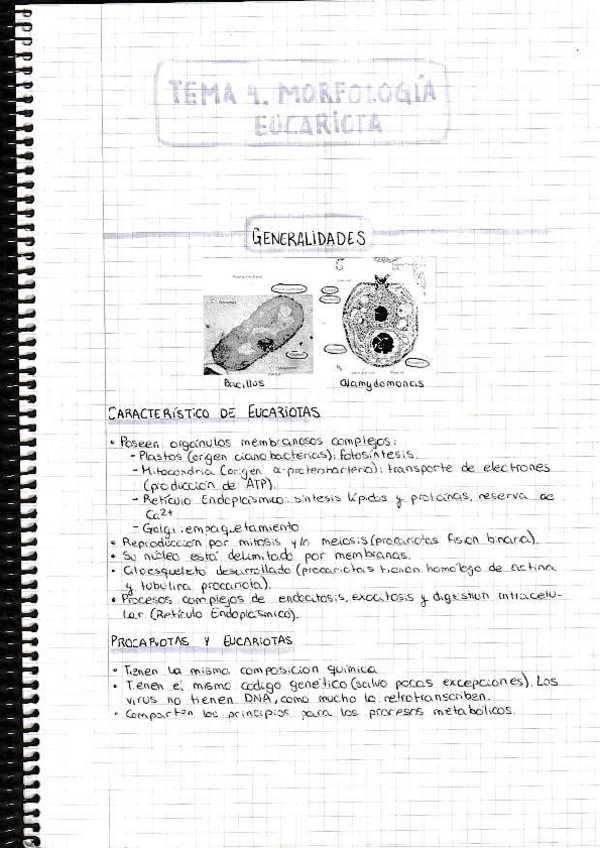 TEMA 4. MORFOLOGÍA
EUCARIOTA
GENERALIDADES
Bacillus
Clamydomonas
CARACTERÍSTICO DE EUCARIOTAS
• Poseen orgánulos membranosos complejos:
- Plastos (origen cianobacterias): fotosíntesis.
- Mitocondria (origen α-proteobacteria): transporte de electrones
(producción de ATP).
- Retículo Endoplásmico: síntesis lípidos y proteínas, reserva de
Ca2+
- Golgi: empaquetamiento
• Reproducción por mitosis y/o meiosis (procariotas fisión binaria).
• Su núcleo está delimitado por membranas.
• Citoesqueleto desarrollado (procariotas tienen homólogo de actina
y tubulina procariota).
• Procesos complejos de endocitosis, exocitosis y digestión intracelu-
lar (Retículo Endoplásmico).
PROCARIOTAS Y EUCARIOTAS
• Tienen la misma composición química
• Tienen el mismo código genético (salvo pocas excepciones). Los
virus no tienen DNA, como mucho lo retrotranscriben.
• Comparten los principios para los procesos metabólicos.